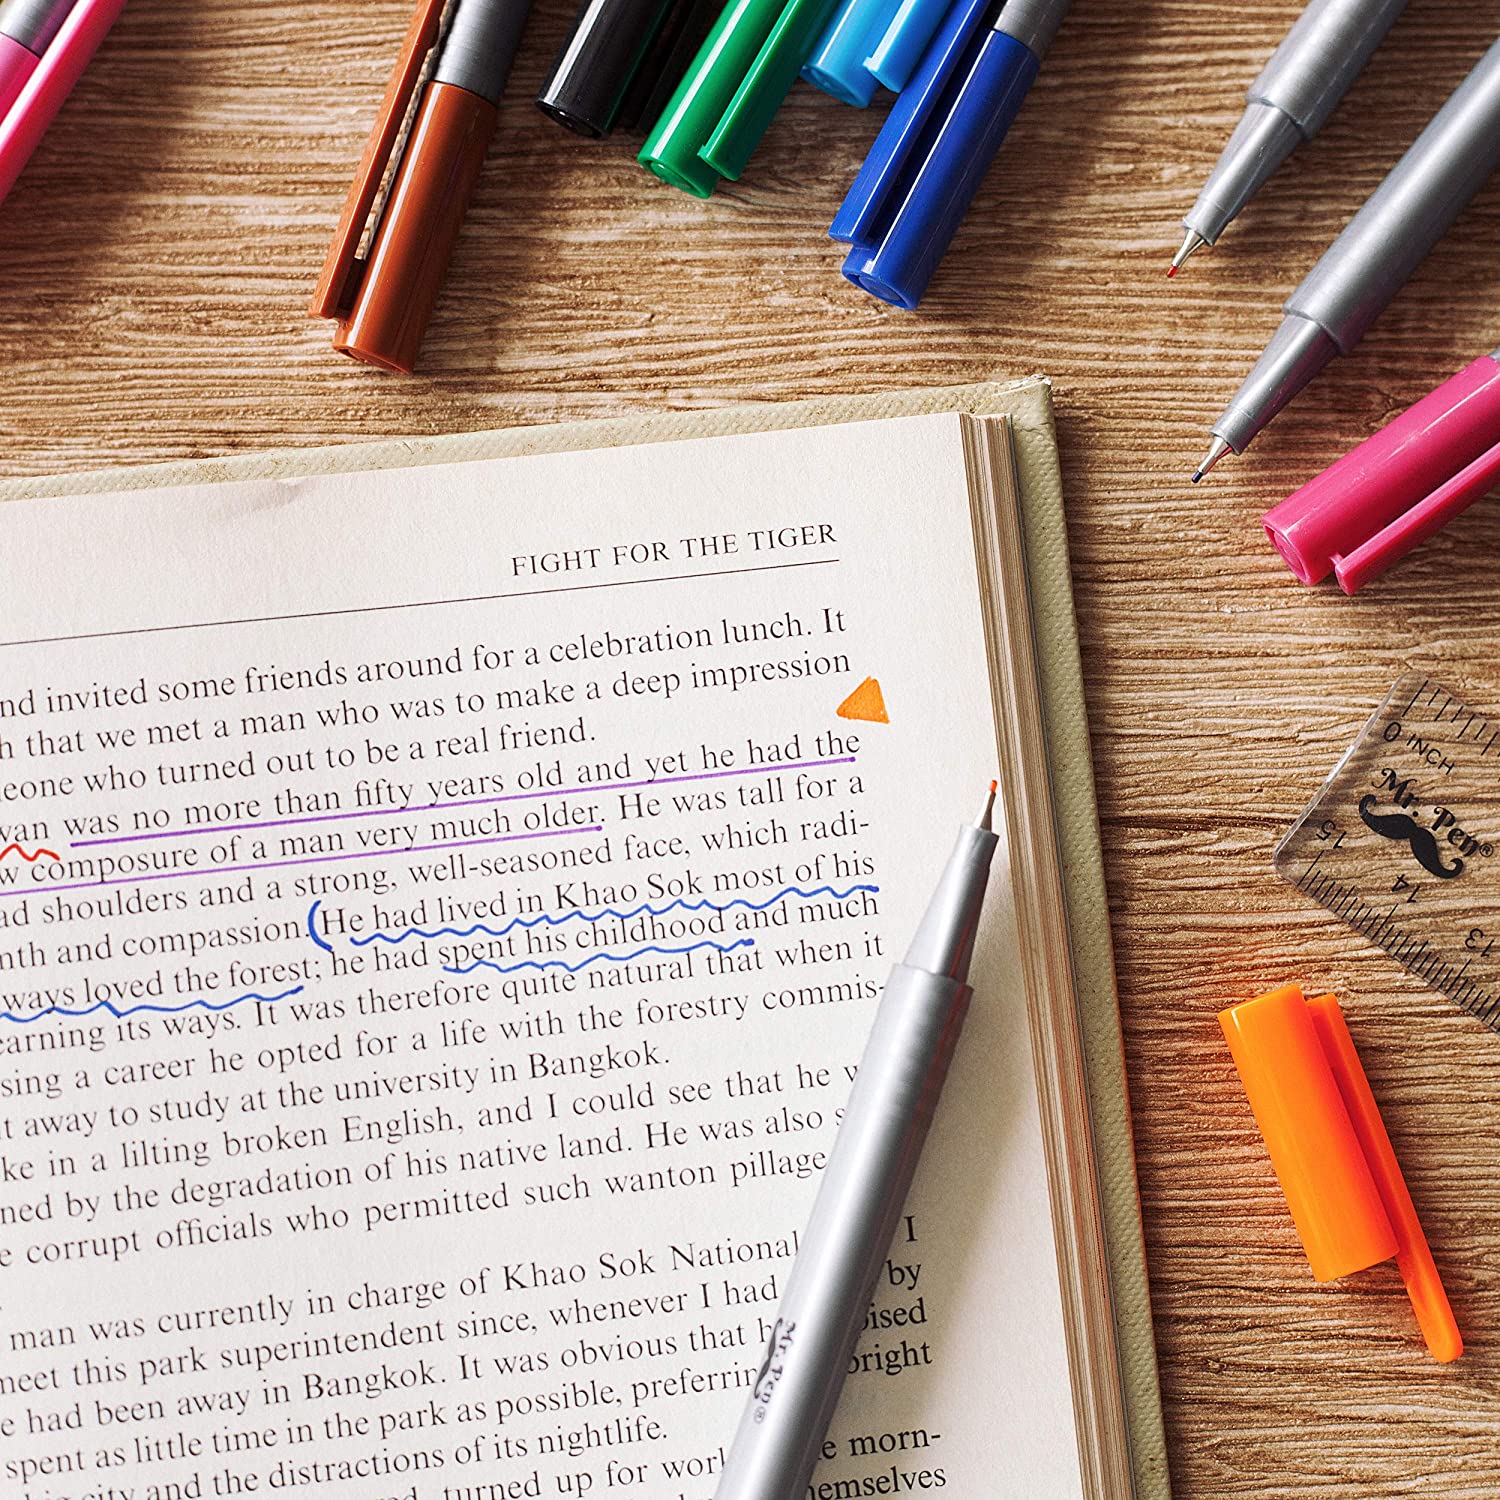 FIGHT FOR THE TIGER
invited some friends around for a celebration lunch. It
that we met a man who was to make a deep impression
who turned out to be a real friend.
was no more than fifty years old and yet he had the
composure of a man very much older. He was tall for a
shoulders and a strong, well-seasoned face, which radi-
and compassion. (He had lived in Khao Sok most of his
spent his childhood and much
loved the forest; he had
It was therefore quite natural that when it
its ways.
a career he opted for a life with the forestry commis-
away to study at the university in Bangkok.
in a lilting broken English, and I could see that he
by the degradation of his native land. He was also
corrupt officials who permitted such wanton pillage
man was currently in charge of Khao Sok National I
meet this park superintendent since, whenever I had by
had been away in Bangkok. It was obvious that
spent as little time in the park as possible,
city and the distractions of its nightlife.
turned up for
Mr. Pen®
0 INCH
Mr. Pen®
15
14
13